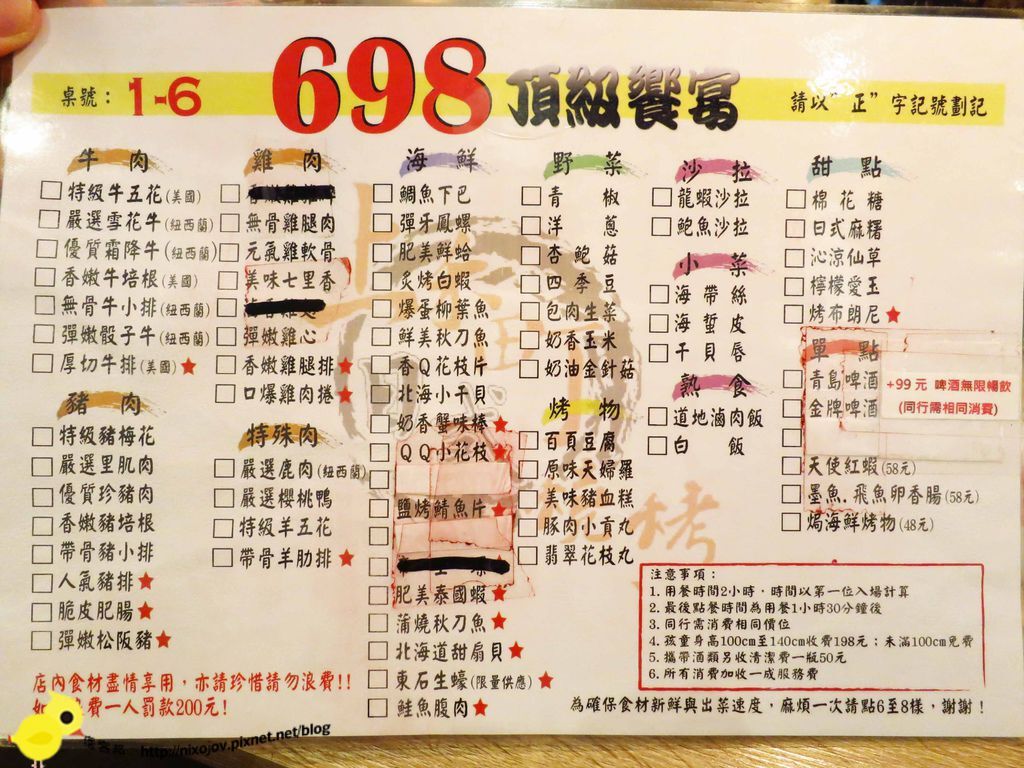 桌號：1-6
698 頂級饗宴
請以"正"字記號劃記
牛肉
□特級牛五花(美國)
□嚴選雪花牛(紐西蘭)
□優質霜降牛(紐西蘭)
□香嫩牛培根(美國)
□無骨牛小排(紐西蘭)
□彈嫩骰子牛(紐西蘭)
□厚切牛排(美國)★
豬肉
□特級豬梅花
□嚴選里肌肉
□優質珍豬肉
□香嫩豬培根
□帶骨豬小排
□人氣豬排★
□脆皮肥腸★
□彈嫩松阪豬★
雞肉
□無骨雞腿肉
□元氣雞軟骨
□美味七里香
□彈嫩雞心
□香嫩雞腿排★
□口爆雞肉捲★
特殊肉
□嚴選鹿肉(紐西蘭)
□嚴選櫻桃鴨
□特級羊五花
□帶骨羊肋排★
海鮮
□鯛魚下巴
□彈牙鳳螺
□肥美鮮蛤
□炙烤白蝦
□爆蛋柳葉魚
□鮮美秋刀魚
□香Q花枝片
□北海小干貝
□奶香蟹味棒★
□QQ小花枝★
□鹽烤鯖魚片★
□肥美泰國蝦★
□蒲燒秋刀魚★
□北海道甜扇貝★
□東石生蠔(限量供應)★
□鮭魚腹肉★
野菜
□青椒
□洋蔥
□杏鮑菇
□四季豆
□包肉生菜
□奶香玉米
□奶油金針菇
烤物
□百頁豆腐
□原味天婦羅
□美味豬血糕
□豚肉小貢丸
□翡翠花枝丸
沙拉
□龍蝦沙拉
□鮑魚沙拉
小菜
□海帶絲
□海蜇皮
□干貝唇
熟食
□道地滷肉飯
□白飯
甜點
□棉花糖
□日式麻糬
□沁涼仙草
□檸檬愛玉
□烤布朗尼★
單點
□青島啤酒
□金牌啤酒
+99元 啤酒無限暢飲
(同行需相同消費)
□天使紅蝦(58元)
□墨魚.飛魚卵香腸(58元)
□焗海鮮烤物(48元)
注意事項：
1.用餐時間2小時，時間以第一位入場計算
2.最後點餐時間為用餐1小時30分鐘後
3.同行需消費相同價位
4.孩童身高100cm至140cm收費198元；未滿100cm免費
5.攜帶酒類另收清潔費一瓶50元
6.所有消費加收一成服務費
店內食材盡情享用，亦請珍惜請勿浪費!!
如 費一人罰款200元!
為確保食材新鮮與出菜速度，麻煩一次請點6至8樣，謝謝！
http://nixojov.pixnet.net/blog